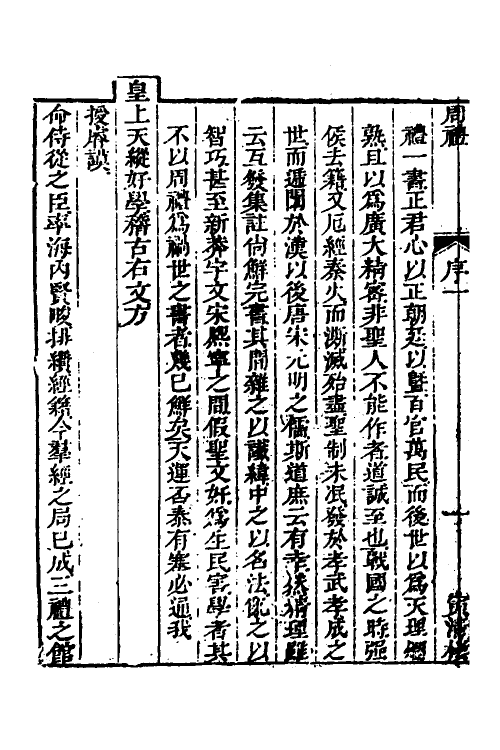 周禮 序一
禮一書正君心以正朝廷以曁百官萬民而後世以爲天理爛
熟且以爲廣大精密非聖人不能作者道誠至也戰國之時強
侯去籍又厄經秦火而澌滅殆盡聖制未泯發於孝武孝成之
世而遞闡於漢以後唐宋元明之儒斯道庶云有幸然猜理雖
云互發集註尚鮮完書其間雜之以讖緯中之以名法像之以
智巧甚至新莽宇文宋熙寧之間假聖文奸爲生民害學者其
不以周禮爲禍世之書者幾已鮮矣天運否泰有塞必通我
皇上天縱好學稽古右文方
授 謨
命侍從之臣率海內賢畯排纘經籍今羣經之局已成三禮之館